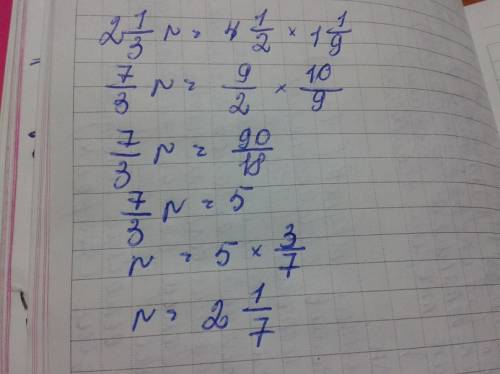 2 1/3 n = 4 1/2 × 1 1/9
7/3 n = 9/2 × 10/9
7/3 n = 90/18
7/3 n = 5
n = 5 × 3/7
n = 2 1/7